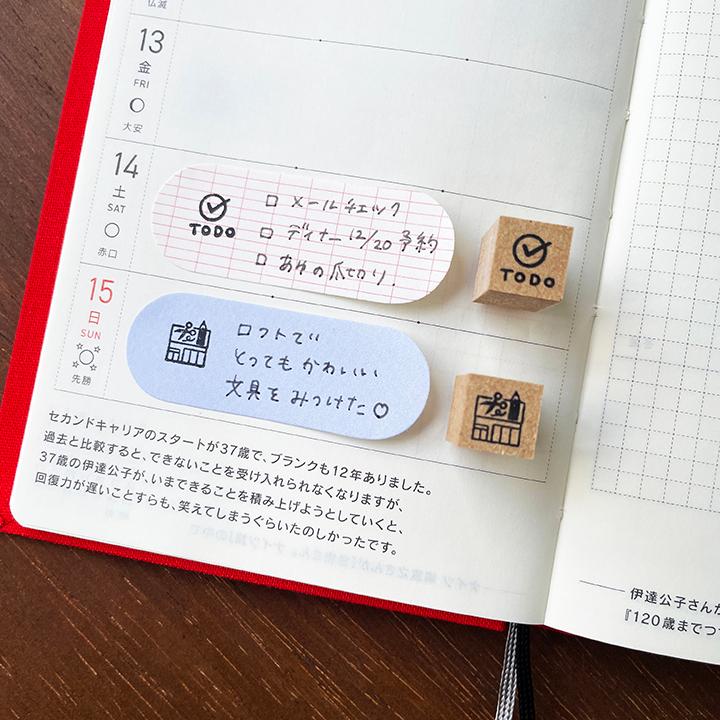 仏滅
13
金
FRI
大安
14
土
SAT
赤口
TODO
□ メールチェック
□ ディナー 12/20 予約
□ あやの爪切り.
TODO
15
日
SUN
先勝
ロフトで
とってもかわいい
文具をみつけた♡
セカンドキャリアのスタートが37歳で、ブランクも12年ありました。
過去と比較すると、できないことを受け入れられなくなりますが、
37歳の伊達公子が、いまできることを積み上げようとしていくと、
回復力が遅いことすらも、笑えてしまうぐらいたのしかったです。
伊達公子さんが
『120歳までつ